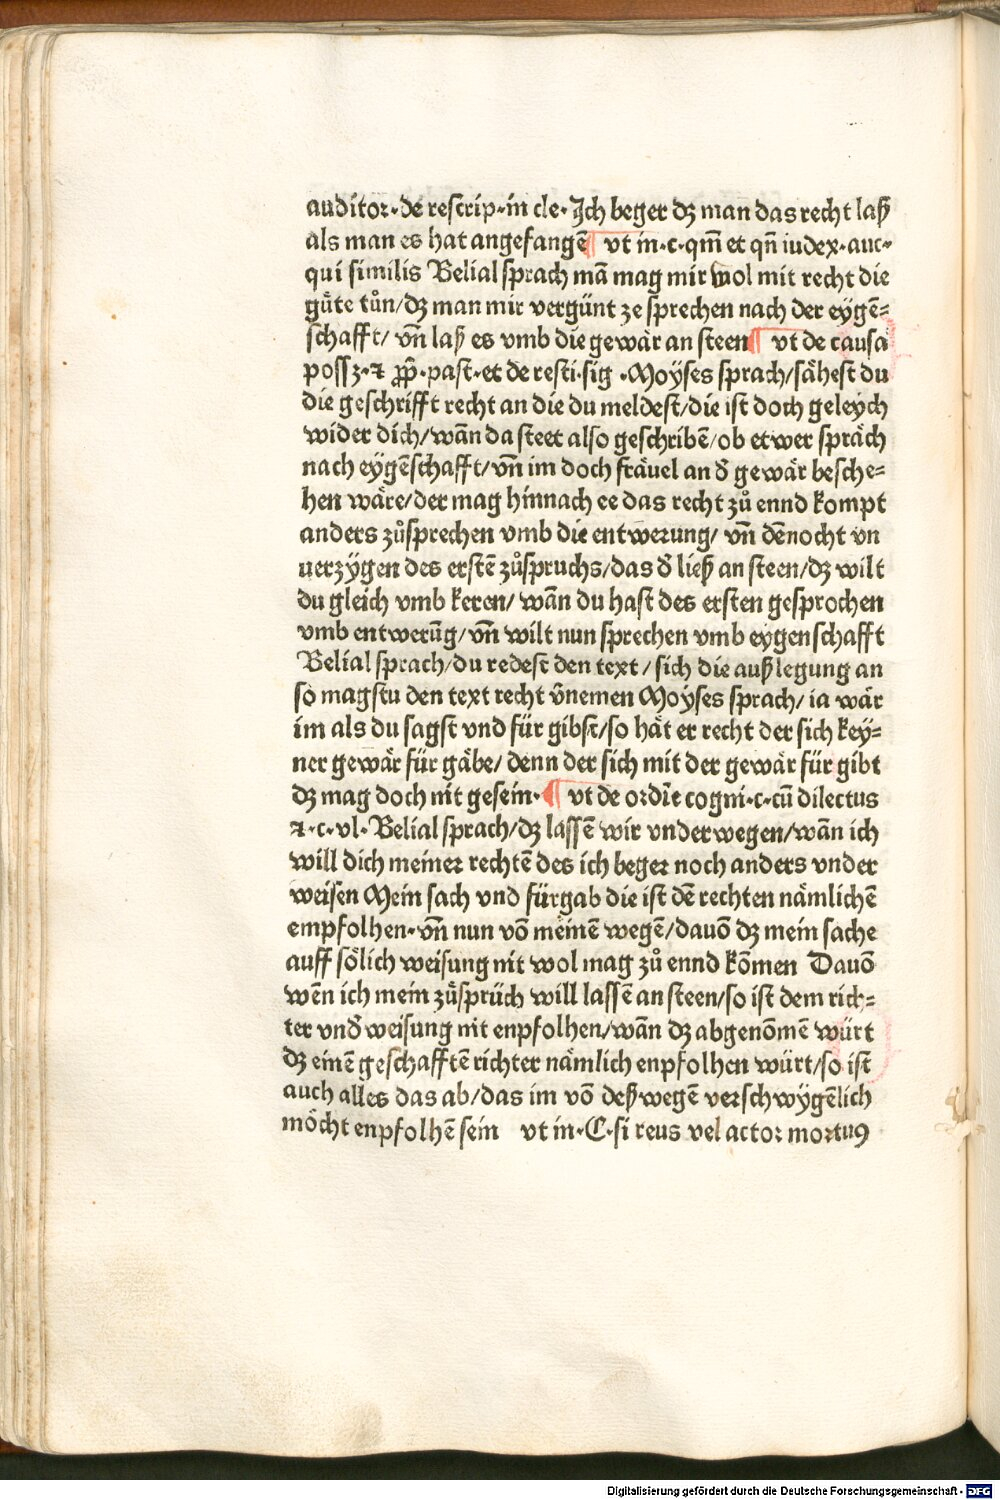 auditor·de rescrip·in cle·Ich beger dz man das recht laß
als man es hat angefangē ¶ vt in·c·qm̄ et qn̄ iudex·auc·
qui similis Belial sprach mā mag mir wol mit recht die
gu̇te tůn/dz man mir vergünt ze sprechen nach der eygē⸗
schafft/ vn̄ laß es vmb die gewär an steen ¶ vt de causa
poss ꝫ·⁊ p̱p̄·past·et de resti·sig ·Moÿses sprach/sähest du
die geschrifft recht an die du meldest/die ist doch geleych
wider dich/wān da steet also geschribē/ob etwer spräch
nach eÿgēschafft/vn̄ im doch fräuel an d̄ gewär besche⸗
hen wäre/der mag hinnach ee das recht zů ennd kompt
anders zůsprechen vmb die entwerung/ vn̄ dēnocht vn
uerzÿgen des erstē zůspruchs/das d̄ ließ an steen/dz wilt
du gleich vmb keren/ wān du hast des ersten gesprochen
vmb entwerūg/vn̄ wilt nun sprechen vmb eygenschafft
Belial sprach/du redest den text/sich die außlegung an
so magstu den text recht v̄nemen Moÿses sprach/ ia wär
im als du sagst vnd für gibst/so hät er recht der sich key⸗
ner gewär für gäbe/ denn der sich mit der gewär für gibt
dz mag doch nit gesein·¶ vt de ordīe cogni·c·cū dilectus
⁊·c·vl·Belial sprach/dz lassē wir vnderwegen/wān ich
will dich meiner rechtē des ich beger noch anders vnder
weisen Mein sach vnd fürgab die ist dē rechten nämlichē
empfolhen·vn̄ nun vō meinē wegē/dauō dz mein sache
auff sölich weisung nit wol mag zů ennd kōmen Dauō
wēn ich mein züsprüch will lassē an steen/so ist dem rich⸗
ter vnd̄ weisung nit enpfolhen/wān dz abgenōmē würt
dz einē geschafftē richter nämlich enpfolhen würt/so ist
auch alles das ab/das im vō deßwegē verschwÿgēlich
möcht enpfolhē sein vt in·C·si reus vel actor mortuꝰ
Digitalisierung gefördert durch die Deutsche Forschungsgemeinschaft · DFG